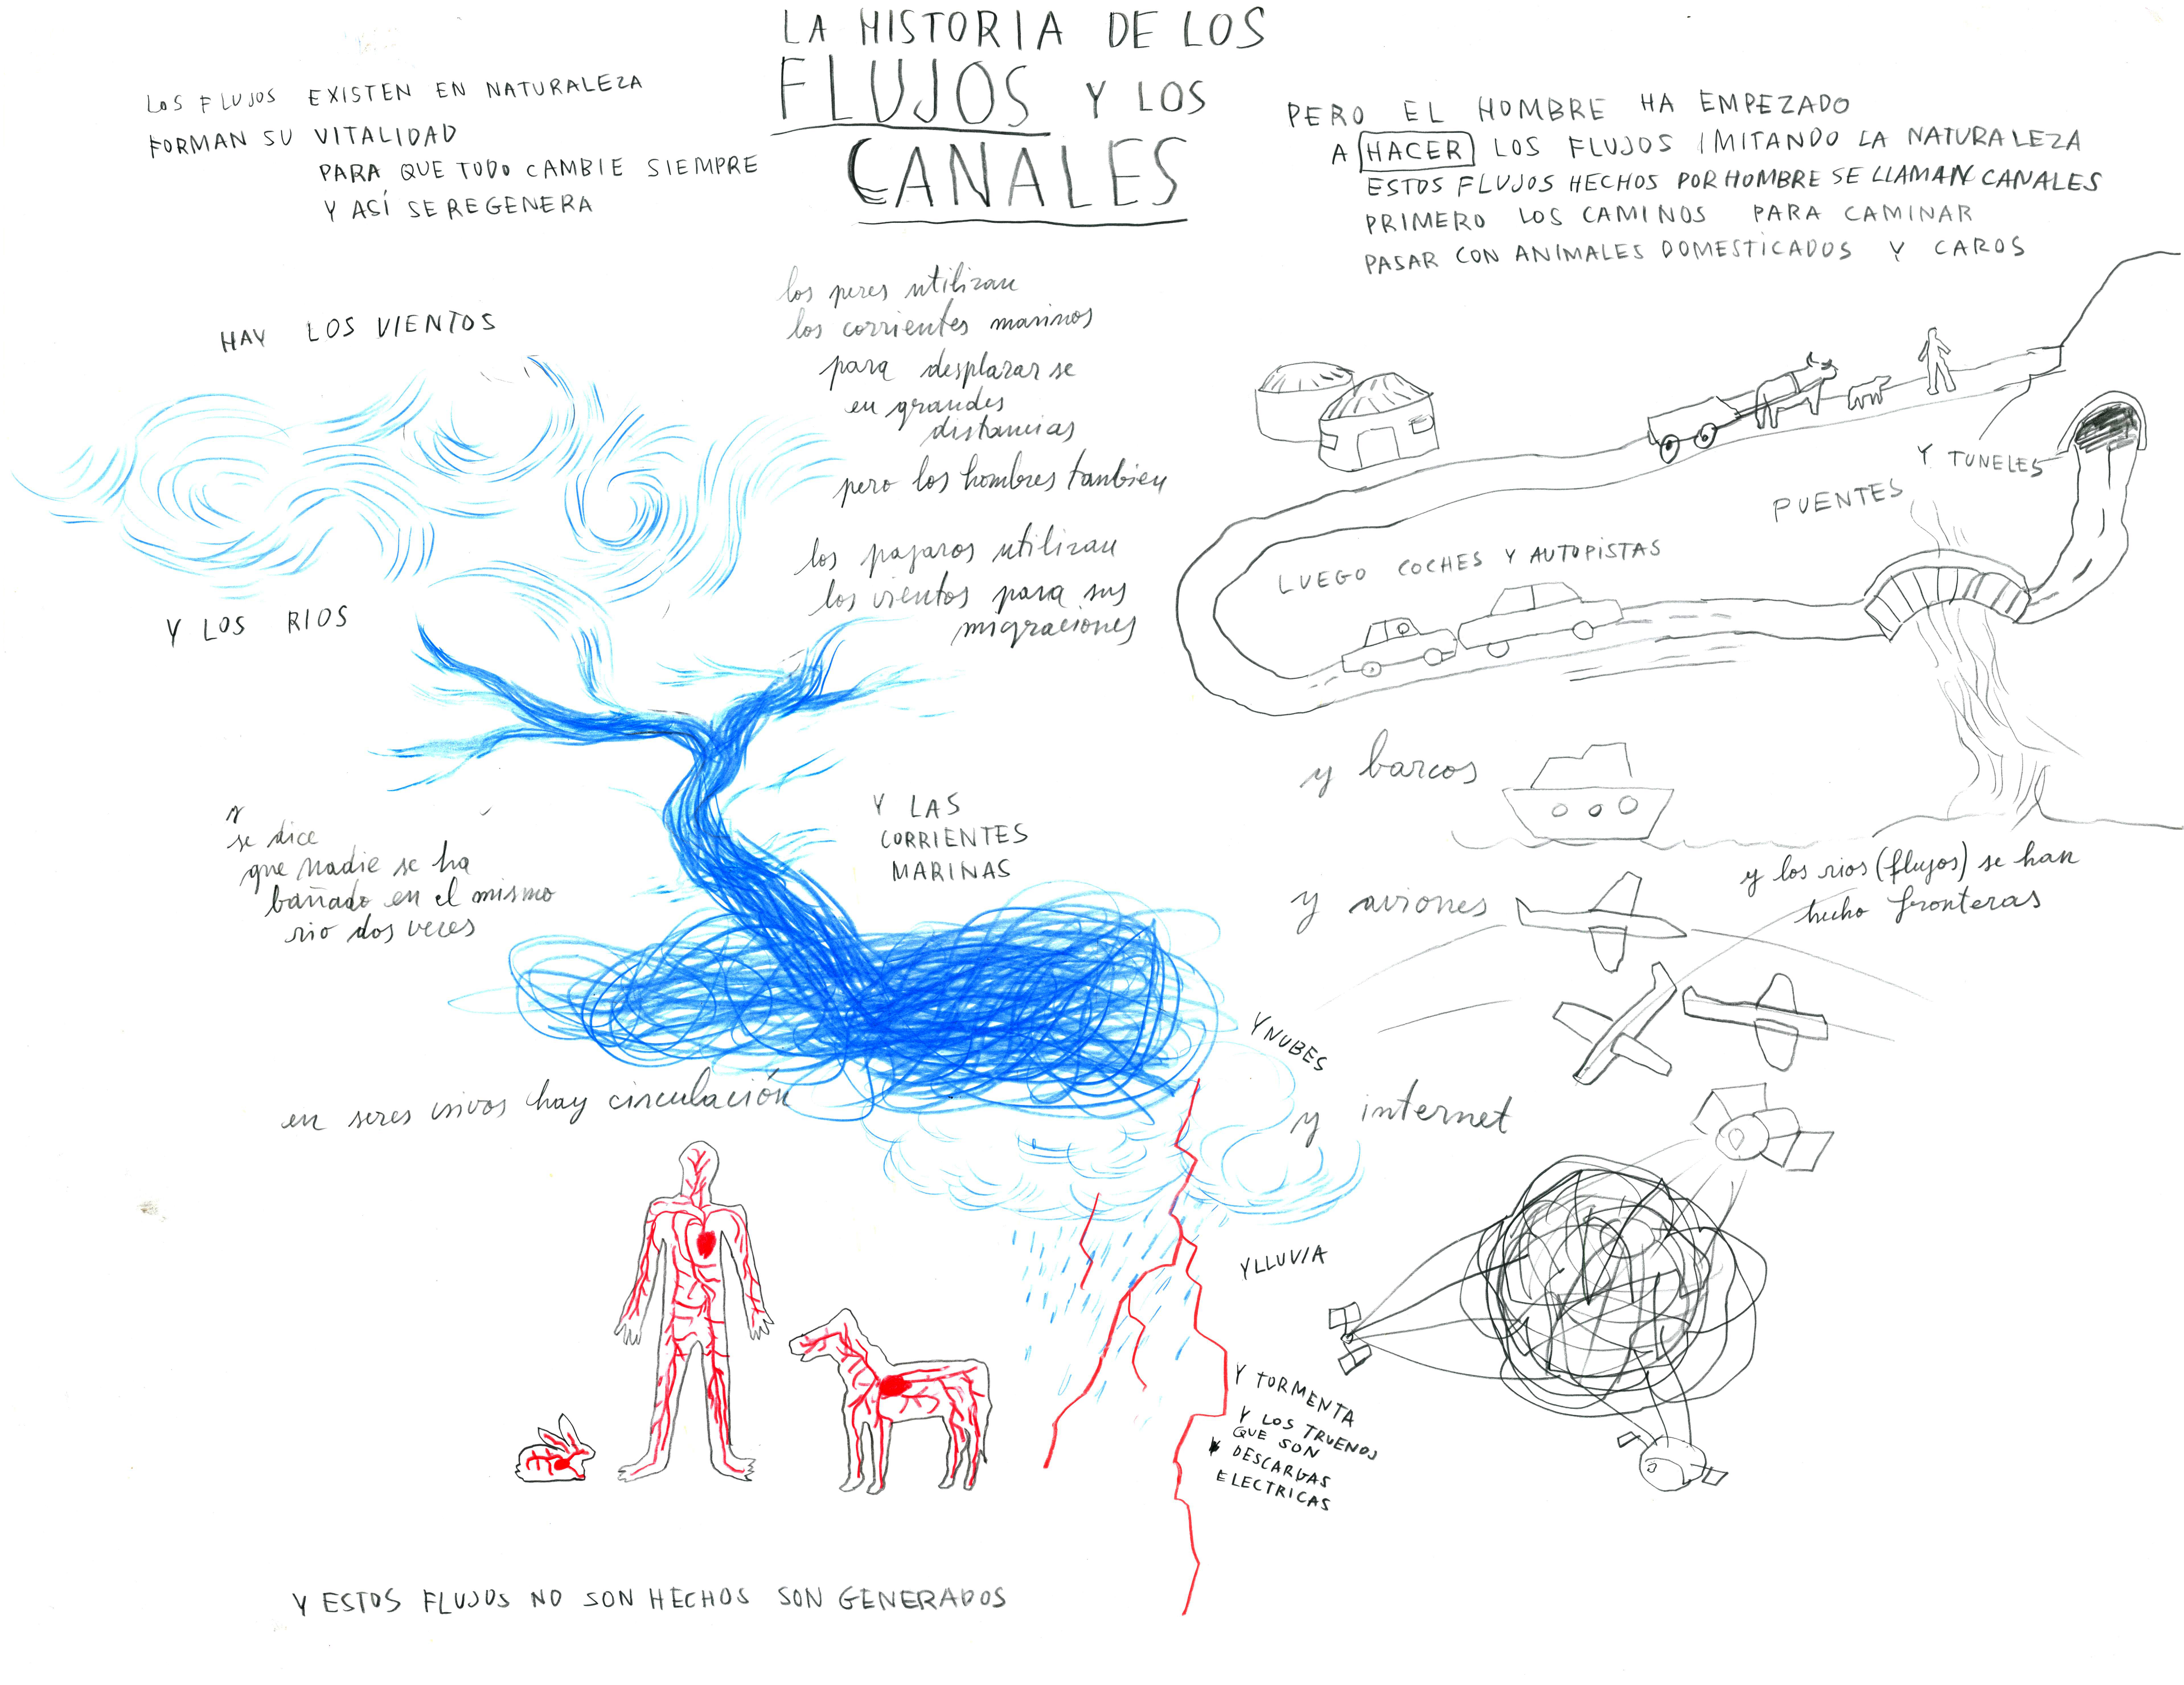 LA HISTORIA DE LOS
FLUJOS Y LOS
CANALES
LOS FLUJOS EXISTEN EN NATURALEZA
FORMAN SU VITALIDAD
PARA QUE TODO CAMBIE SIEMPRE
Y ASÍ SE REGENERA
HAY LOS VIENTOS
los peces utilizan
los corrientes marinos
para desplazar se
en grandes
distancias
pero los hombres tanbien
los pajaros utilizan
los vientos para sus
migraciones
Y LOS RIOS
y
se dice
que nadie se ha
bañado en el mismo
rio dos veces
Y LAS
CORRIENTES
MARINAS
en seres vivos hay circulación
Y NUBES
Y LLUVIA
Y TORMENTA
Y LOS TRUENOS
QUE SON
DESCARGAS
ELECTRICAS
Y ESTOS FLUJOS NO SON HECHOS SON GENERADOS
PERO EL HOMBRE HA EMPEZADO
A HACER LOS FLUJOS IMITANDO LA NATURALEZA
ESTOS FLUJOS HECHOS POR HOMBRE SE LLAMAN CANALES
PRIMERO LOS CAMINOS PARA CAMINAR
PASAR CON ANIMALES DOMESTICADOS Y CAROS
Y TUNELES
PUENTES
LUEGO COCHES Y AUTOPISTAS
y barcos
y los rios (flujos) se han
hecho fronteras
y aviones
y internet